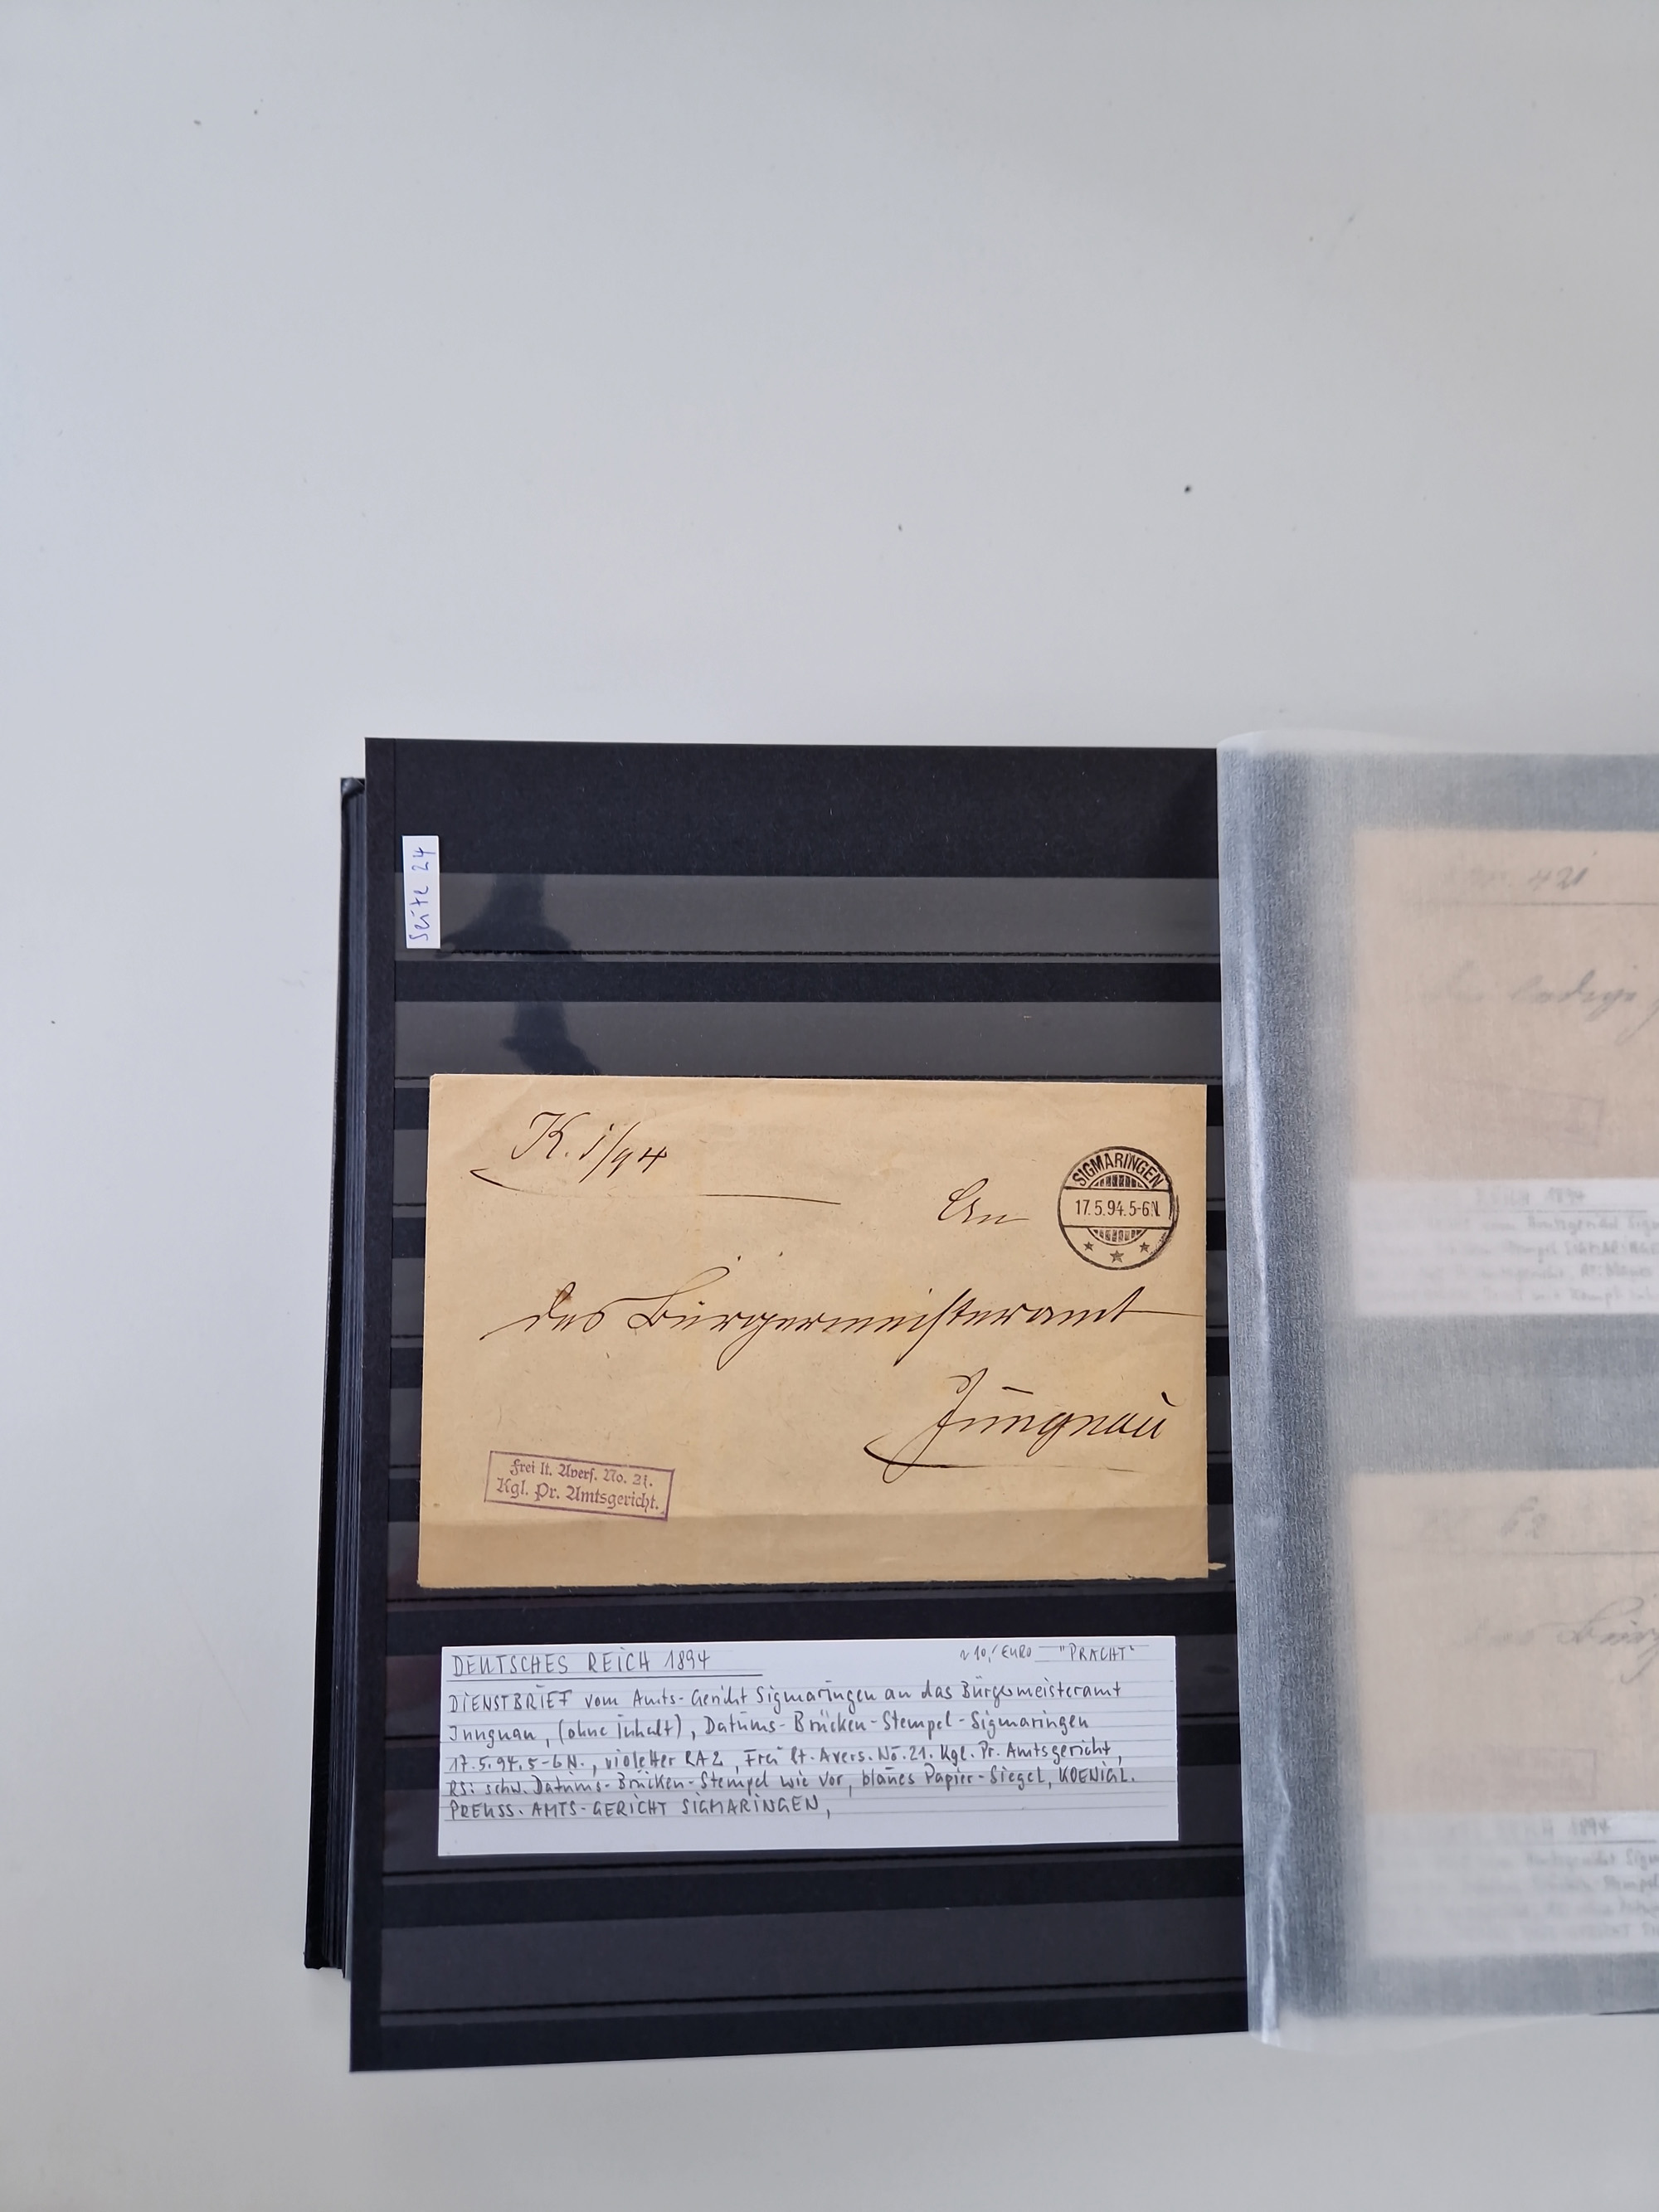 Seite 24
K. 1/94
SIGMARINGEN
17.5.94.5-6N.
An
das Bürgermeisteramt
Jungnau
Frei lt. Avers. No. 21.
Kgl. Pr. Amtsgericht.
DEUTSCHES REICH 1894 ~10,- EURO "PRACHT"
DIENSTBRIEF vom Amts-Gericht Sigmaringen an das Bürgermeisteramt
Jungnau, (ohne Inhalt), Datums-Brücken-Stempel-Sigmaringen
17.5.94.5-6N., violetter RA2, Frei lt. Avers. No. 21. Kgl. Pr. Amtsgericht,
RS: schw. Datums-Brücken-Stempel wie vor, blaues Papier-Siegel, KOENIGL.
PREUSS. AMTS-GERICHT SIGMARINGEN,
421
1894
62
1894